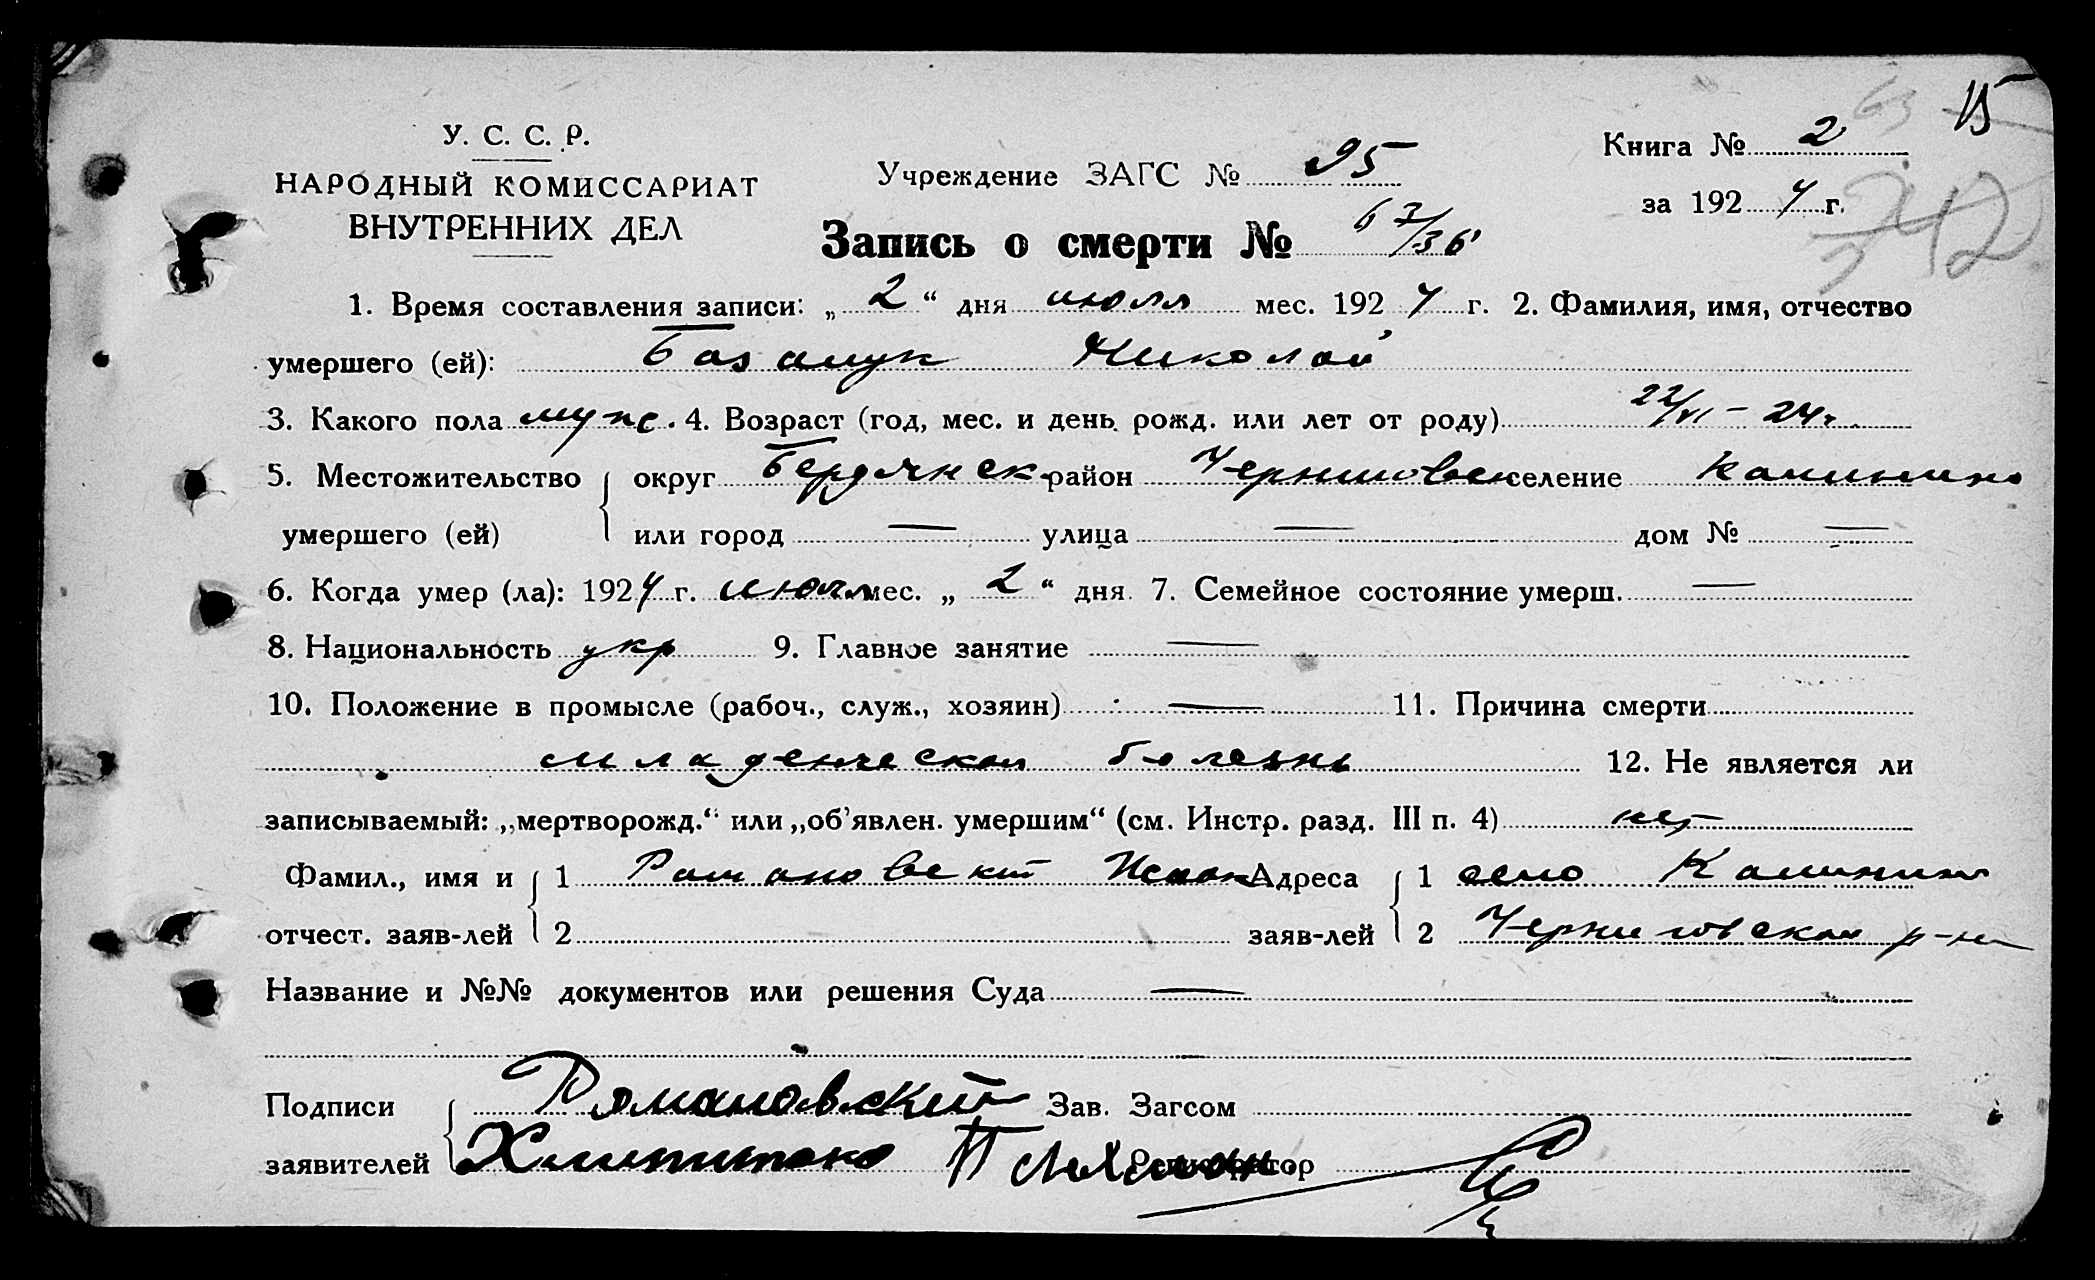 15
У. С. С. Р.
НАРОДНЫЙ КОМИССАРИАТ
ВНУТРЕННИХ ДЕЛ
Учреждение ЗАГС № 95
Книга № 2
за 1924 г.
342
Запись о смерти № 67/36
1. Время составления записи: „2“ дня июля мес. 1924 г. 2. Фамилия, имя, отчество
умершего (ей): Николай
3. Какого пола муж. 4. Возраст (год, мес. и день рожд. или лет от роду) 22/VI – 24 г.
5. Местожительство округ Бердянск район селение Калинино
умершего (ей) или город — улица — дом № —
6. Когда умер (ла): 1924 г. июля мес. „2“ дня. 7. Семейное состояние умерш. —
8. Национальность укр 9. Главное занятие —
10. Положение в промысле (рабоч., служ., хозяин) — 11. Причина смерти
младенческая болезнь 12. Не является ли
записываемый: „мертворожд.“ или „об’явлен. умершим“ (см. Инстр. разд. III п. 4) нет
Фамил., имя и 1 Романовский Исаак Адреса 1 село Калинино
отчест. заяв-лей 2 заяв-лей 2 Черниговская р-на
Название и №№ документов или решения Суда —
Подписи Романовский Зав. Загсом
заявителей Регистратор